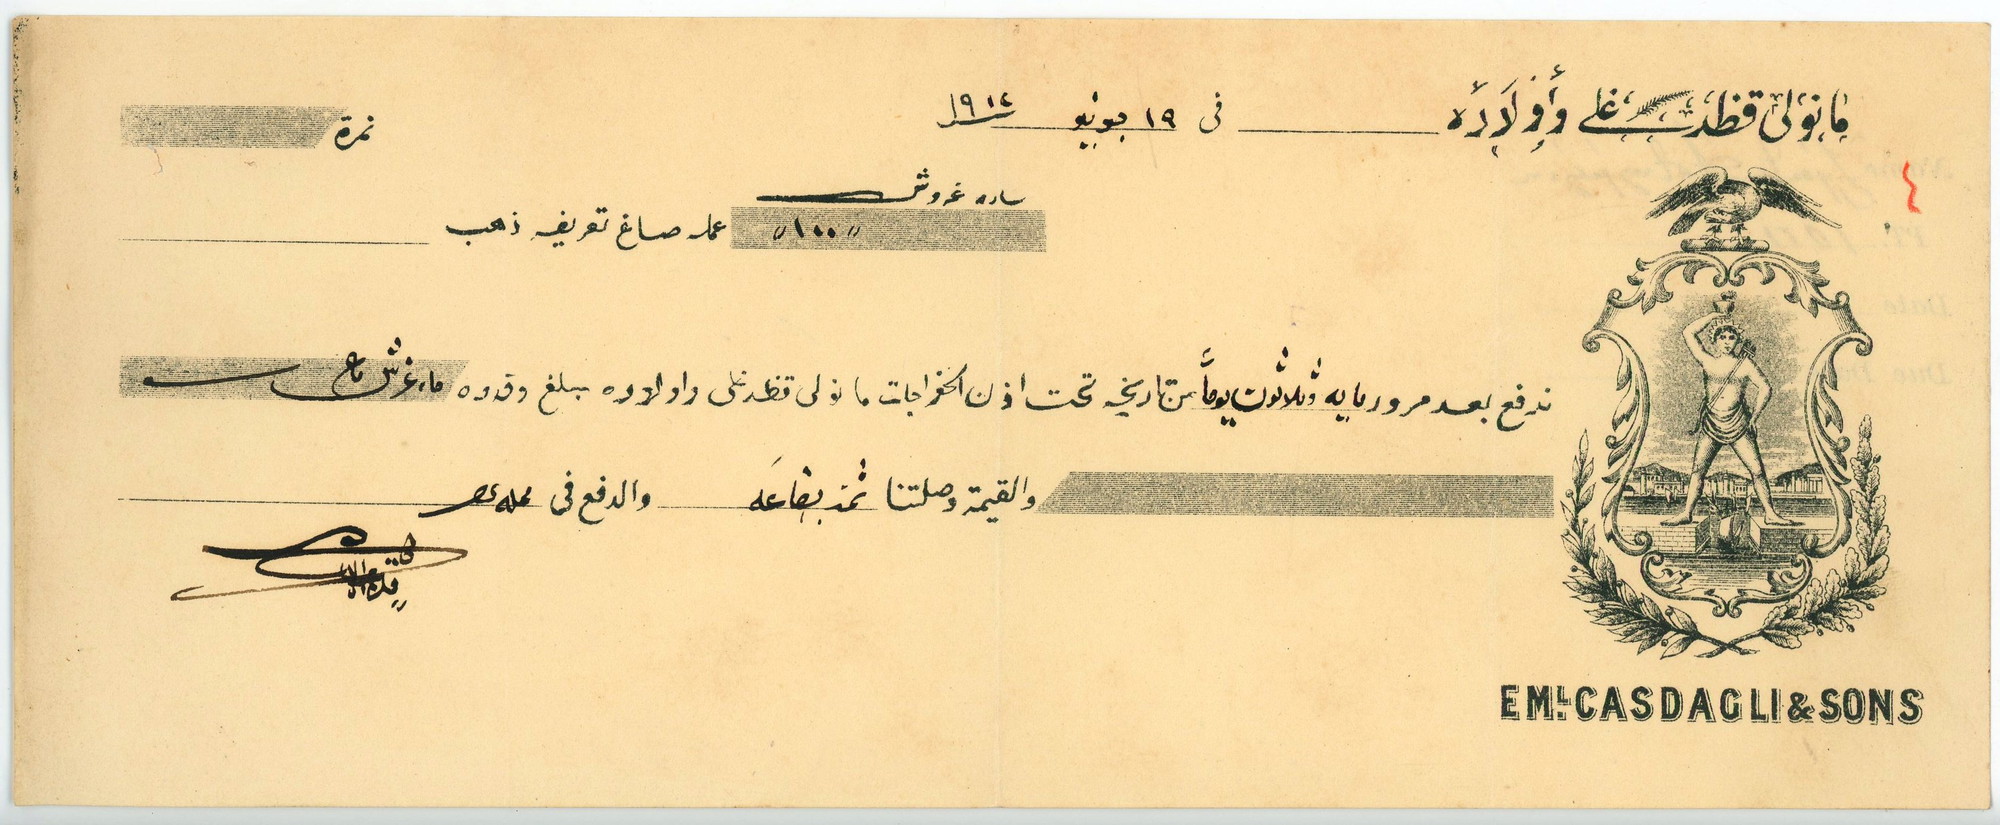 مانولى قطدغلى وأولاده في ١٩ يونيو سنة ١٩١٤
نمرة
ساره غروش
"١٠٠" عمله صاغ تعريفه ذهب
ندفع بعد مرور مايه وثلاثون يوماً من تاريخه تحت اذن الخواجات مانولى قطدغلى واولاده مبلغ وقدره مايه غرش صاغ
والقيمة وصلتنا ثمن بضاعه والدفع فى محله بمصر
EML. CASDAGLI & SONS